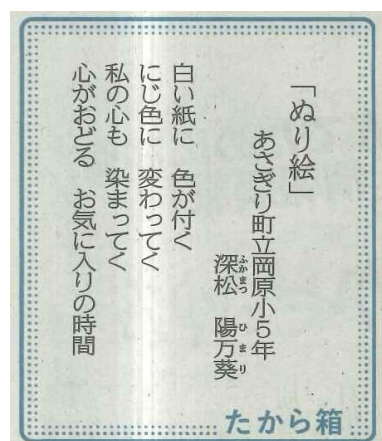 「ぬり絵」
あさぎり町立岡原小5年
深松 陽万葵
ふかまつ ひまり
白い紙に 色が付く
にじ色に 変わってく
私の心も 染まってく
心がおどる お気に入りの時間
たから箱